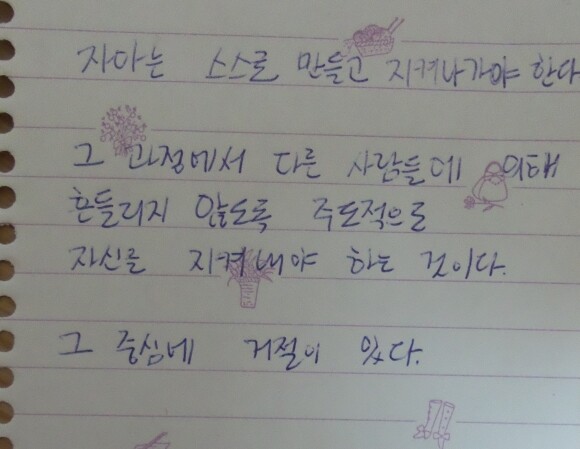 자아는 스스로 만들고 지켜나가야 한다
그 과정에서 다른 사람들에 의해
흔들리지 않도록 주도적으로
자신를 지켜내야 하는 것이다.
그 중심에 거절이 있다.